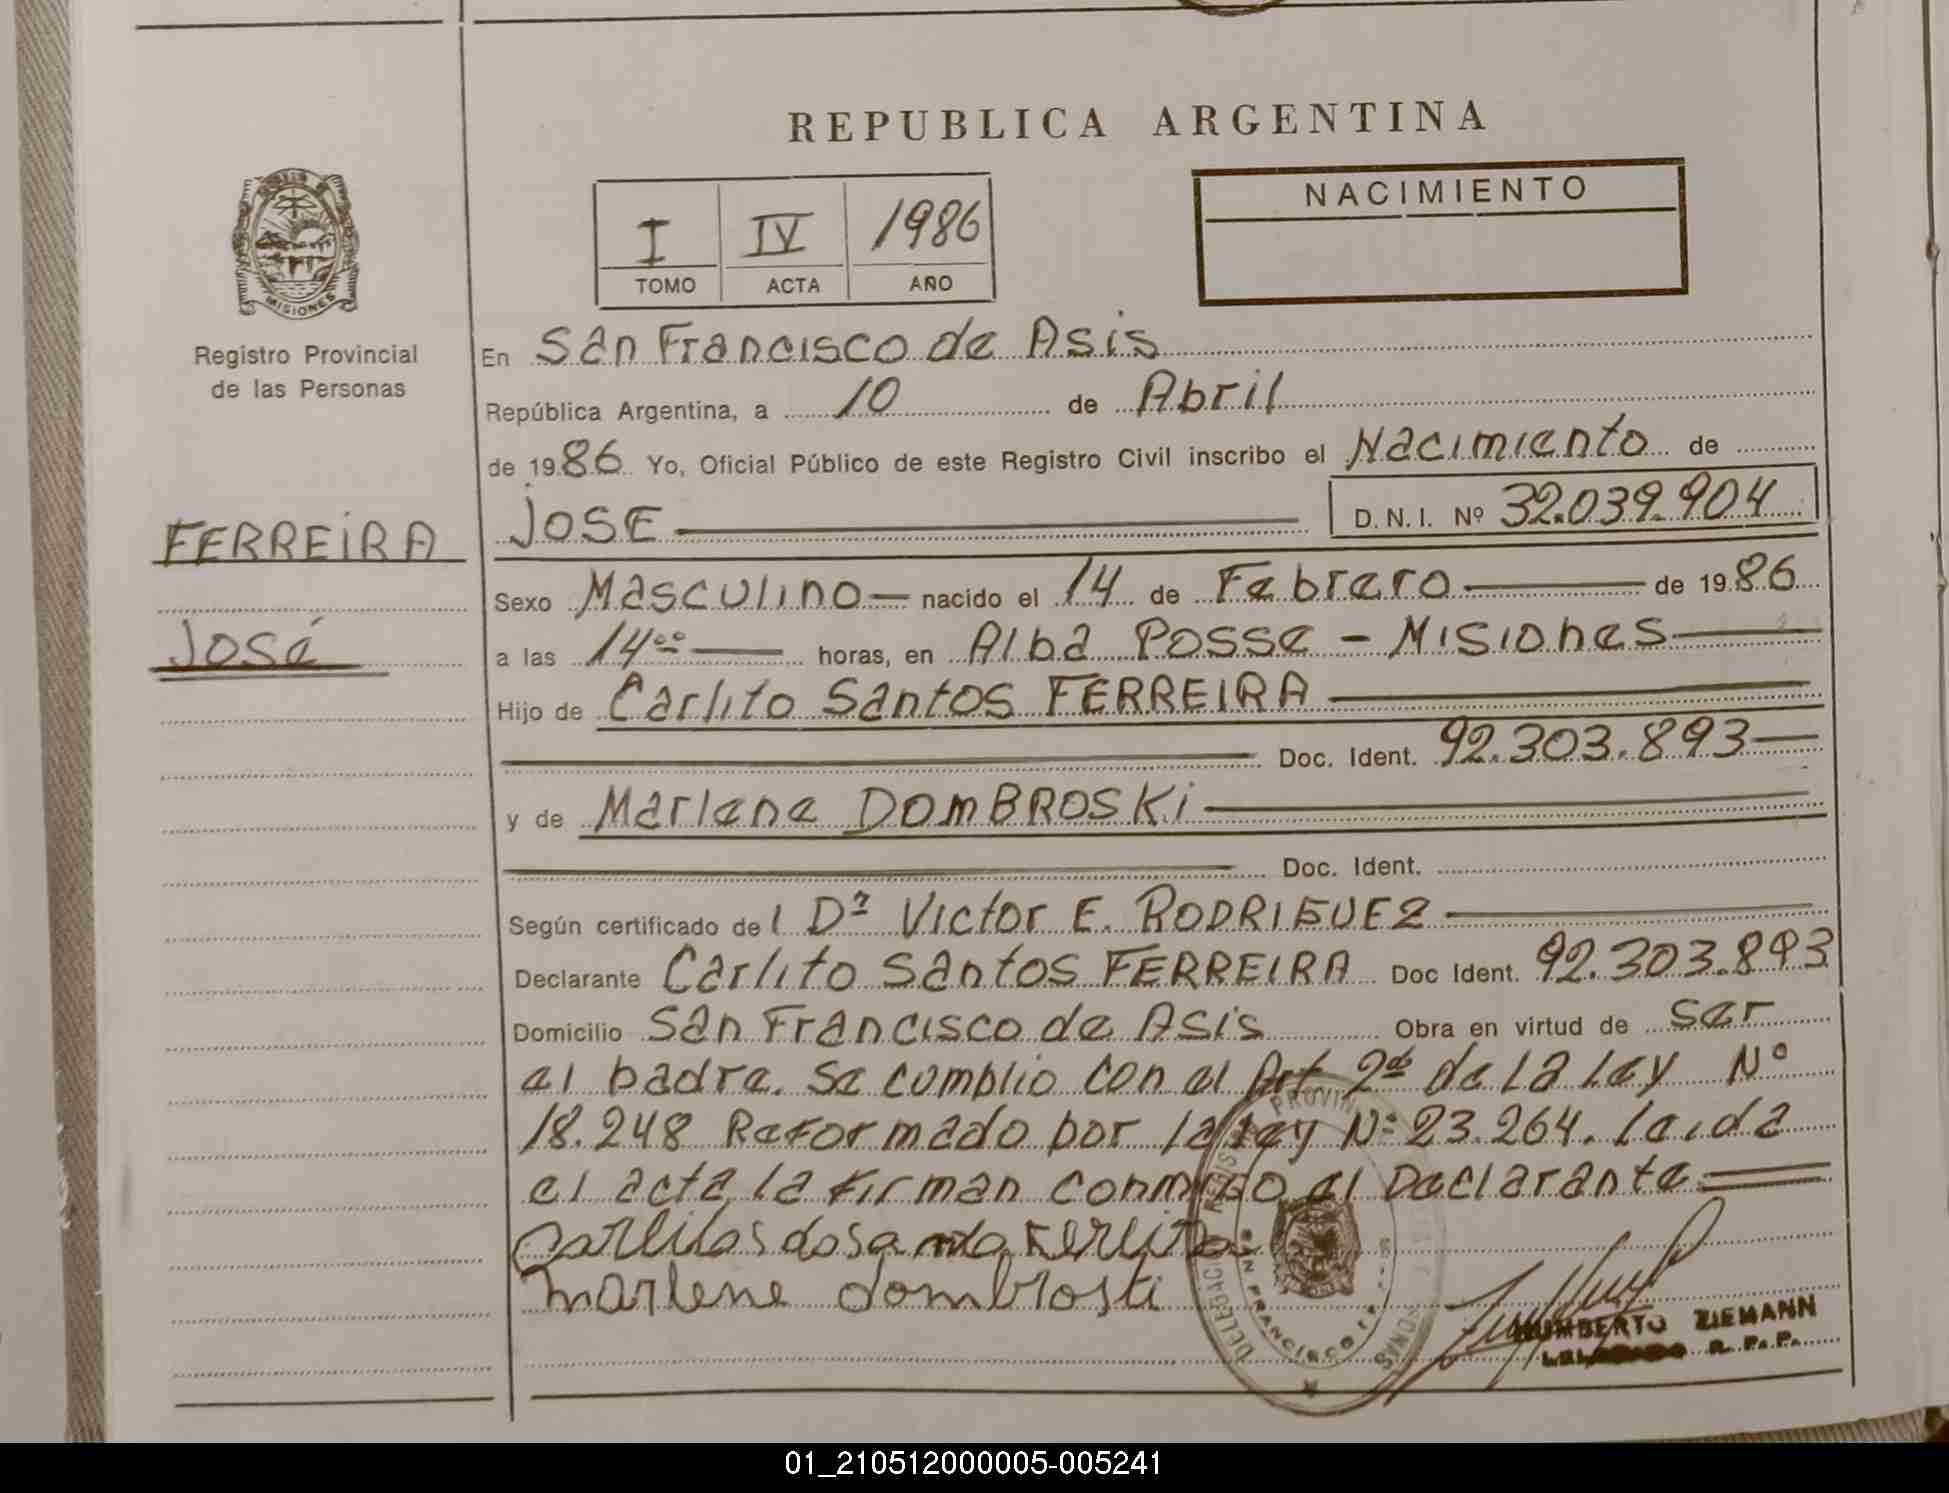 REPUBLICA ARGENTINA
NACIMIENTO
I IV 1986
TOMO ACTA AÑO
MISIONES
Registro Provincial
de las Personas
FERREIRA
José
En San Francisco de Asis
República Argentina, a 10 de Abril
de 1986 Yo, Oficial Público de este Registro Civil inscribo el Nacimiento de
JOSE D.N.I. Nº 32.039.904
Sexo Masculino nacido el 14 de Febrero de 1986
a las 14ºº horas, en Alba Posse - Misiones
Hijo de Carlito Santos FERREIRA
Doc. Ident. 92.303.893
y de Marlene DOMBROSKi
Doc. Ident.
Según certificado del Dr Victor E. RODRIGUEZ
Declarante Carlito Santos FERREIRA Doc Ident. 92.303.893
Domicilio San Francisco de Asis Obra en virtud de ser
el padre. Se cumplio con el Art 2do de La Ley Nº
18.248 Reformado por la Ley Nº 23.264. Leida
el acta la firman conmigo el Declarante
marlene dombroski
HUMBERTO ZIEMANN
R. P. P.
01_210512000005-005241